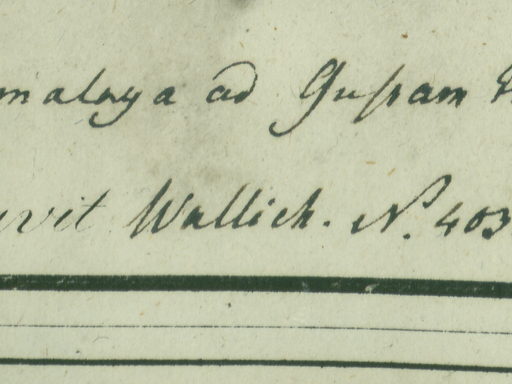 malaya ad Gussam
vit Wallich. N. 403